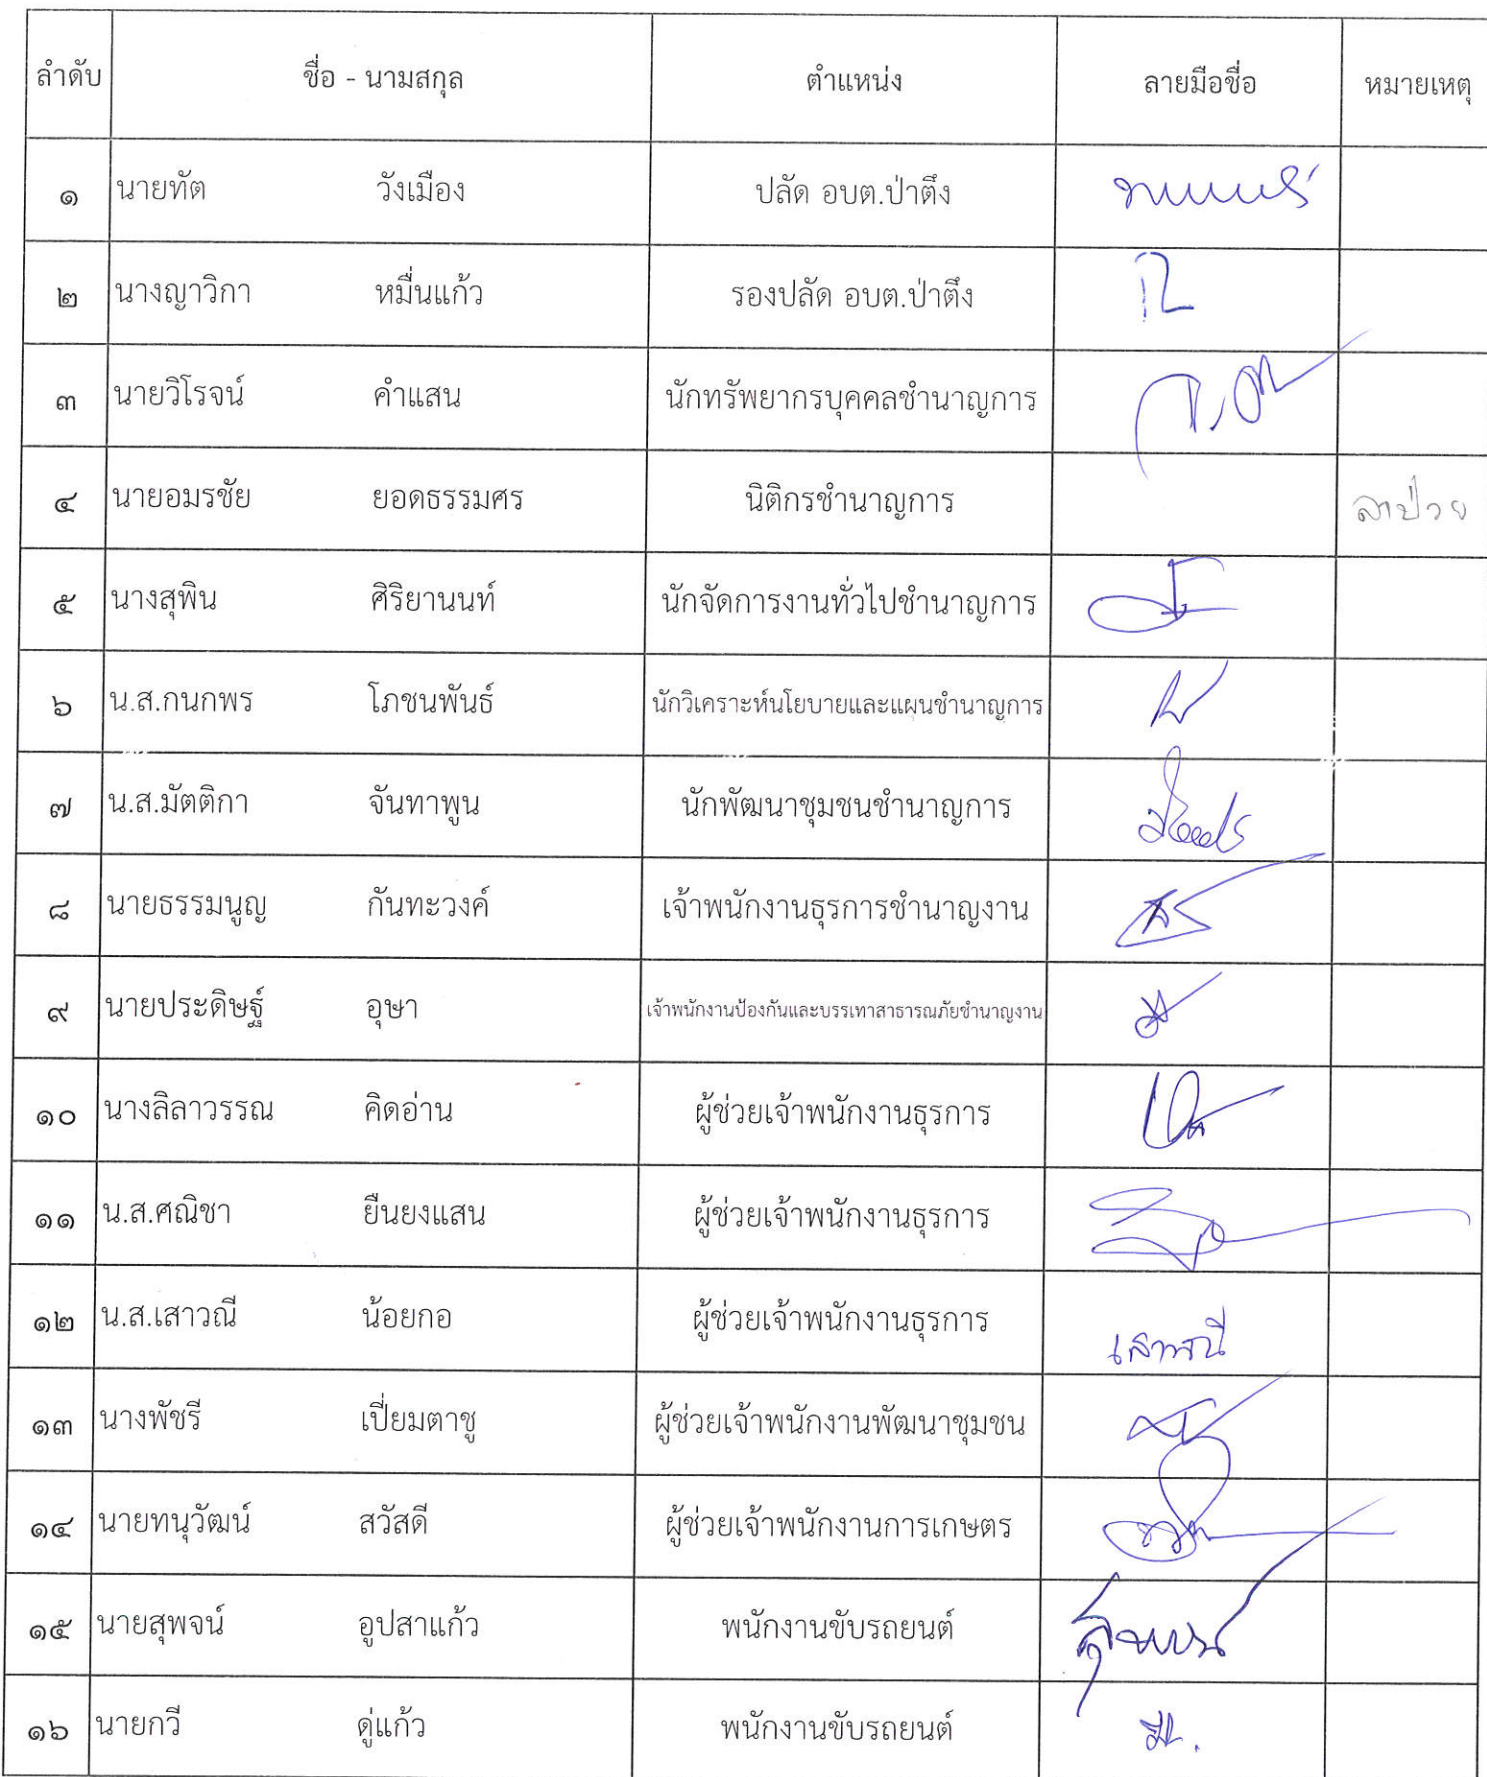 ลำดับ ชื่อ - นามสกุล ตำแหน่ง ลายมือชื่อ หมายเหตุ
๑ นายทัต วังเมือง ปลัด อบต.ป่าตึง
๒ นางญาวิกา หมื่นแก้ว รองปลัด อบต.ป่าตึง
๓ นายวิโรจน์ คำแสน นักทรัพยากรบุคคลชำนาญการ
๔ นายอมรชัย ยอดธรรมศร นิติกรชำนาญการ ลาป่วย
๕ นางสุพิน ศิริยานนท์ นักจัดการงานทั่วไปชำนาญการ
๖ น.ส.กนกพร โภชนพันธ์ นักวิเคราะห์นโยบายและแผนชำนาญการ
๗ น.ส.มัตติกา จันทาพูน นักพัฒนาชุมชนชำนาญการ
๘ นายธรรมนูญ กันทะวงค์ เจ้าพนักงานธุรการชำนาญงาน
๙ นายประดิษฐ์ อุษา เจ้าพนักงานป้องกันและบรรเทาสาธารณภัยชำนาญงาน
๑๐ นางลิลาวรรณ คิดอ่าน ผู้ช่วยเจ้าพนักงานธุรการ
๑๑ น.ส.ศณิชา ยืนยงแสน ผู้ช่วยเจ้าพนักงานธุรการ
๑๒ น.ส.เสาวณี น้อยกอ ผู้ช่วยเจ้าพนักงานธุรการ เสาวณี
๑๓ นางพัชรี เปี่ยมตาชู ผู้ช่วยเจ้าพนักงานพัฒนาชุมชน
๑๔ นายทนุวัฒน์ สวัสดี ผู้ช่วยเจ้าพนักงานการเกษตร
๑๕ นายสุพจน์ อูปสาแก้ว พนักงานขับรถยนต์
๑๖ นายกวี ดู่แก้ว พนักงานขับรถยนต์